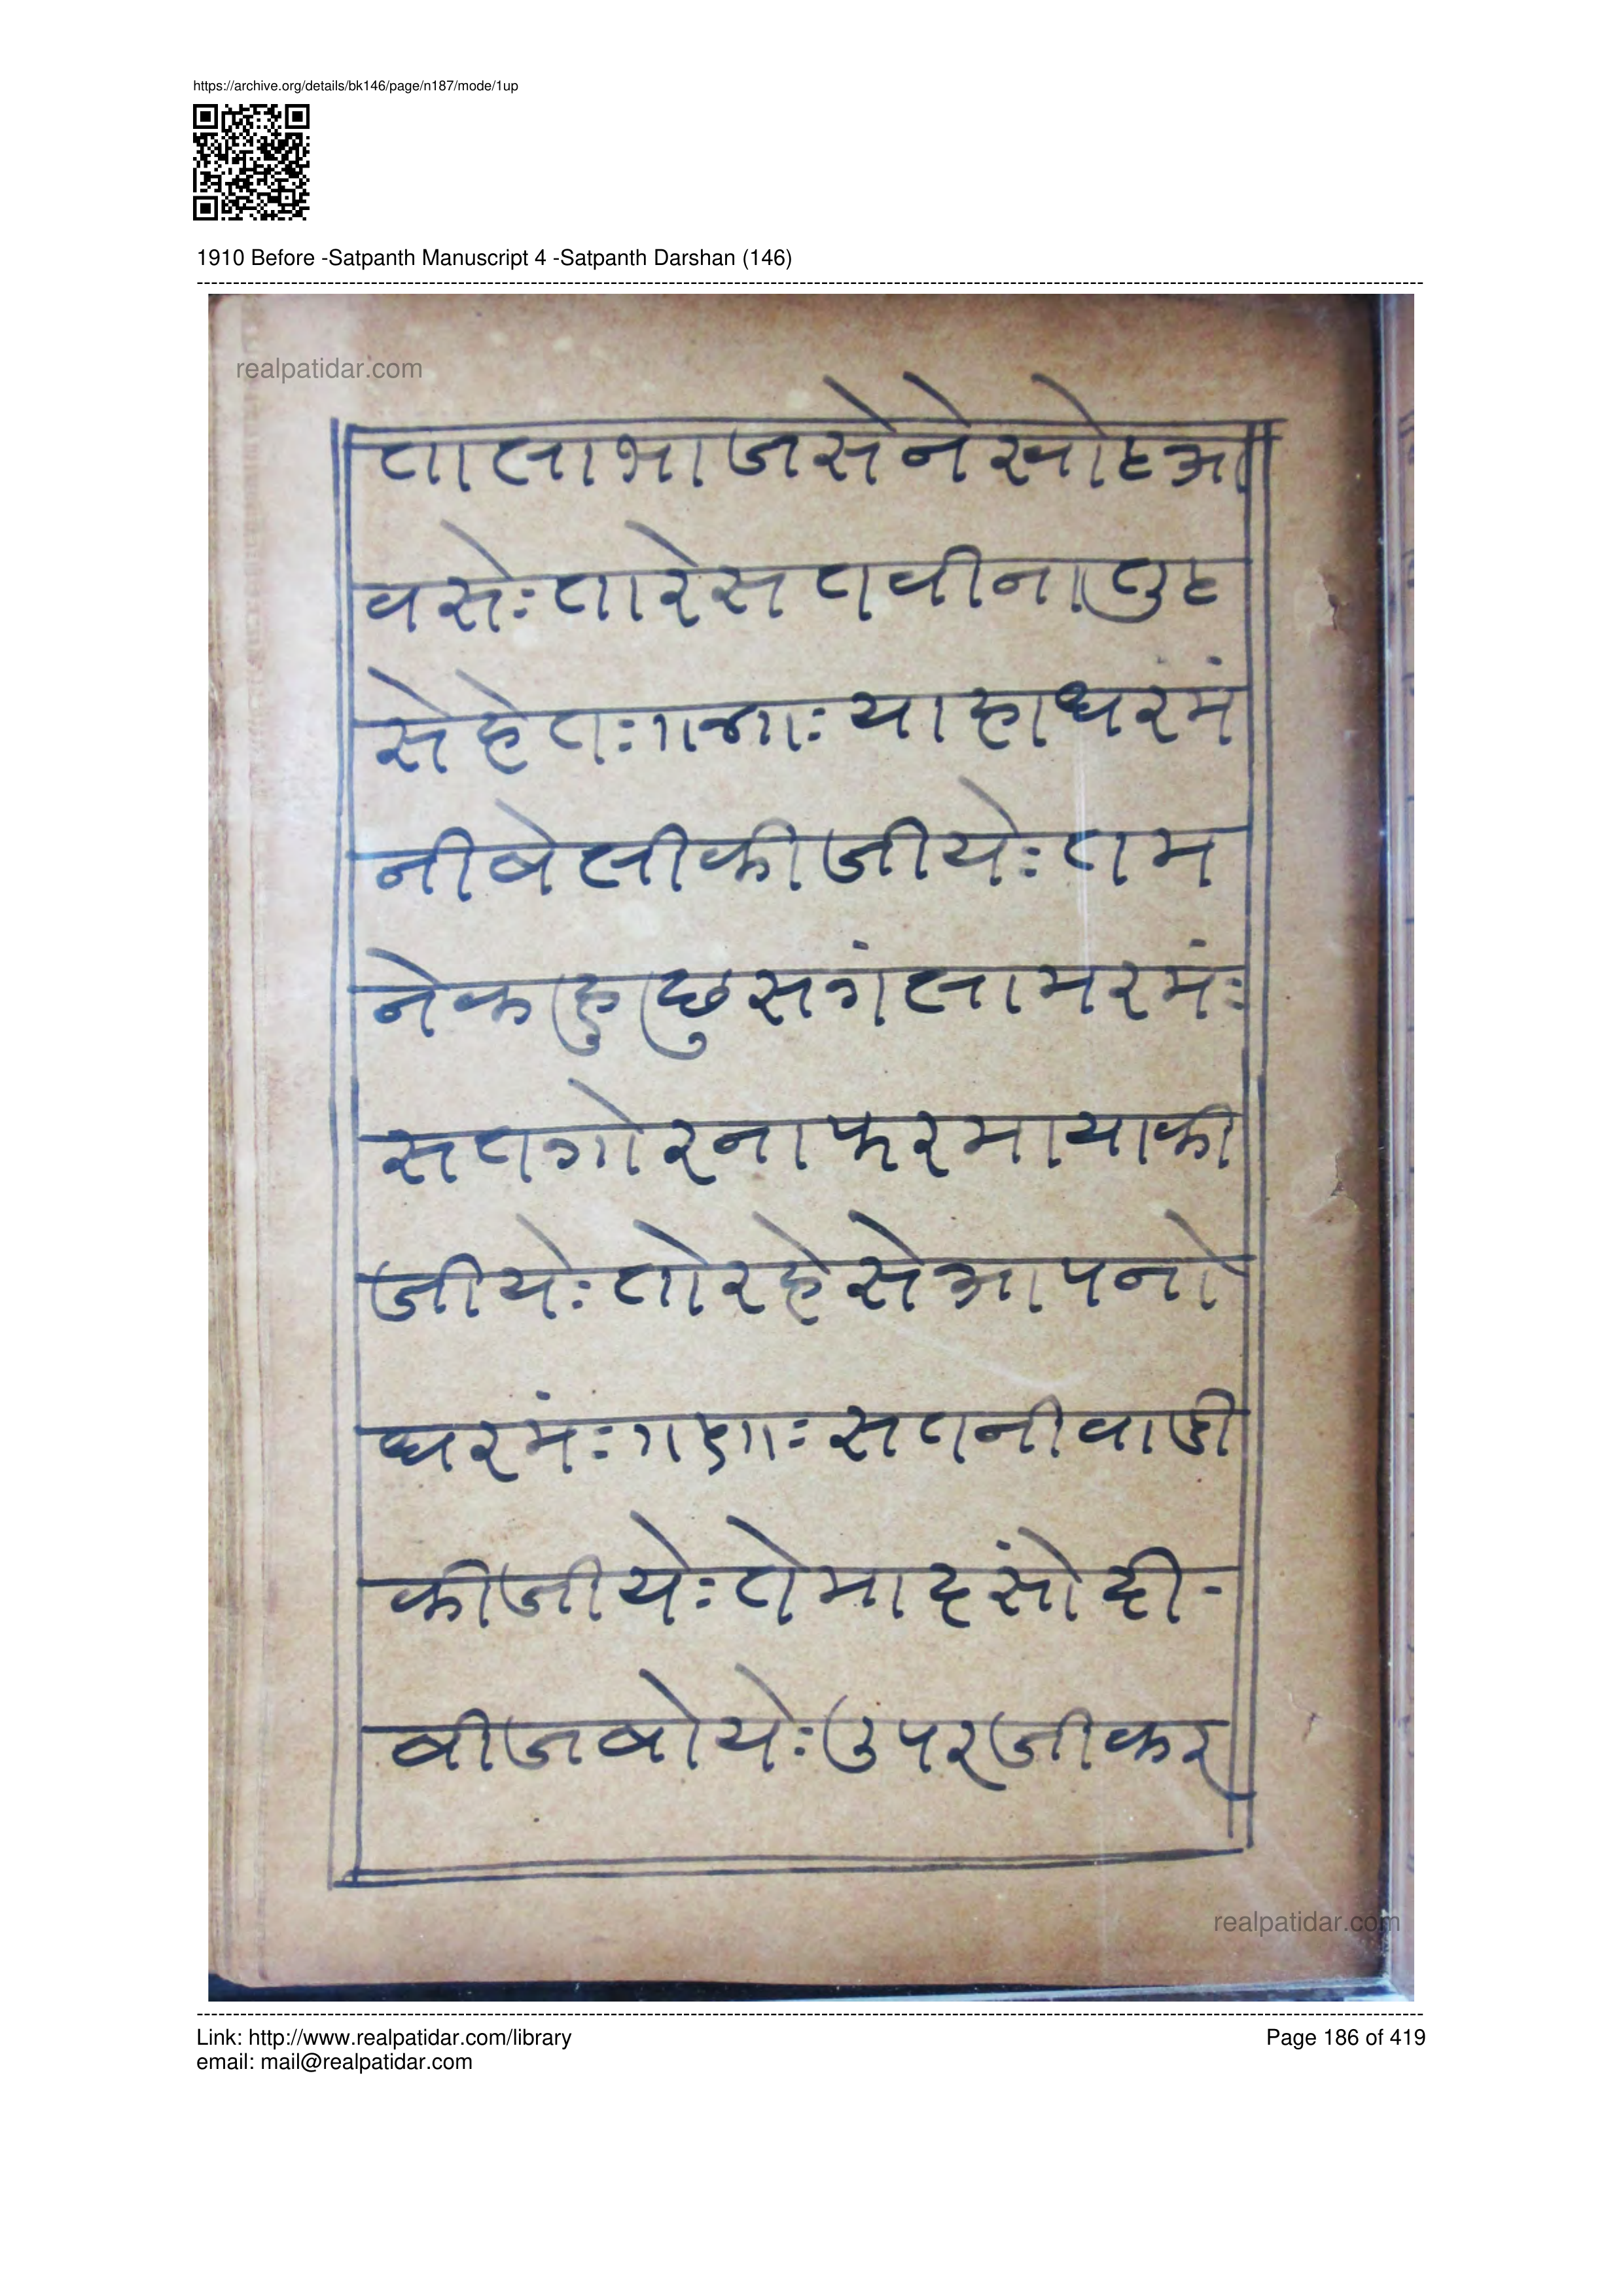 https://archive.org/details/bk146/page/n187/mode/1up
1910 Before -Satpanth Manuscript 4 -Satpanth Darshan (146)
realpatidar.com
ताला भाजसेने खोट आ
वसेः तारे सतवीना तुट
से हेतः।।७।।ः याहा धरमं
नी बेली कीजीयेः तम
ने कहु छु सगंला मरमंः
सतगोरना फरमाया की
जीयेः तो रहेसे आपनो
धरमंः।।८।।ः सतनी वाडी
कीजीयेः ते माहसों दी-
बीज बोयेः उपरजी कर
realpatidar.com
Link: http://www.realpatidar.com/library
email: mail@realpatidar.com
Page 186 of 419